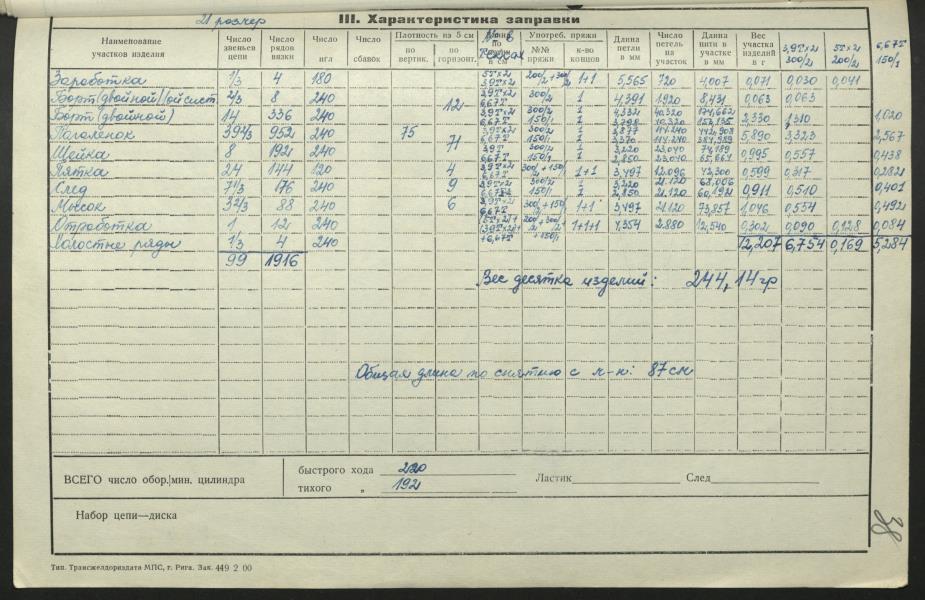 21 размер
III. Характеристика заправки
Наименование участков изделия | Число звеньев цепи | Число рядов вязки | Число игл | Число сбавок | Плотность на 5 см по вертик. | по горизонт. | по в см | Употреб. пряжи №№ пряжи | к-во концов | Длина петли в мм | Число петель на участок | Длина нити в участке в мм | Вес участка изделий в г | 3,9Т×21 300/2 | 5Т×21 200/2 | 6,67Т 150/1
Заработка | 1/3 | 4 | 180 | 5Т×21 3,9Т×21 | 200/2 +300/2 | 1+1 | 5,565 | 720 | 4,007 | 0,071 | 0,030 | 0,041
Борт (двойной) | 2/3 | 8 | 240 | 300/2 | 1 | 4,391 | 1.920 | 8,431 | 0,063 | 0,063
Борт (двойной) | 14 | 336 | 240 | 12 | 3,9Т×21 6,67Т | 300/2 150/1 | 1 1 | 4,332 | 40.320 | 174,662 | 2,330 | 1,310 | 1,020
Паголенок | 39 2/3 | 952 | 240 | 75 | 71 | 3,9Т×21 6,67Т | 300/2 150/1 | 1 1 | 3,877 3,370 | 114.240 114.240 | 442,908 384,989 | 5,890 | 3,323 | 2,567
Щейка | 8 | 192 | 240 | 3,9Т 6,67Т | 300/2 150/1 | 1 1 | 3,220 2,850 | 23.040 23.040 | 74,189 65,664 | 0,995 | 0,557 | 0,438
Пятка | 24 | 144 | 120 | 4 | 3,9Т×21 6,67Т | 300/2 +150/1 | 1+1 | 3,497 | 12.096 | 42,300 | 0,599 | 0,317 | 0,282
След | 7 1/3 | 176 | 240 | 9 | 3,9Т×21 6,67Т | 300/2 150/1 | 1 1 | 3,220 2,850 | 21.120 21.120 | 68,006 60,192 | 0,911 | 0,510 | 0,401
Мысок | 3 2/3 | 88 | 240 | 6 | 3,9Т×21 6,67Т | 300/2 +150/1 | 1+1 | 3,497 | 21.120 | 73,857 | 1,046 | 0,554 | 0,492
Отработка | 1 | 12 | 240 | 5Т×21+ 3,9Т×21+ +6,67Т | 200/2 +300/2 +150/1 | 1+1+1 | 4,354 | 2.880 | 12,540 | 0,302 | 0,090 | 0,128 | 0,084
Холостые ряды | 1/3 | 4 | 240 | 12,207 | 6,754 | 0,169 | 5,284
99 | 1916
Вес десятка изделий: 244,14 гр
Общая длина по снятию с м-н: 87 см
ВСЕГО число обор./мин. цилиндра
быстрого хода 220
тихого „ 192
Ластик
След
Набор цепи—диска
38
Тип. Трансжелдориздата МПС, г. Рига. Зак. 449 2 00